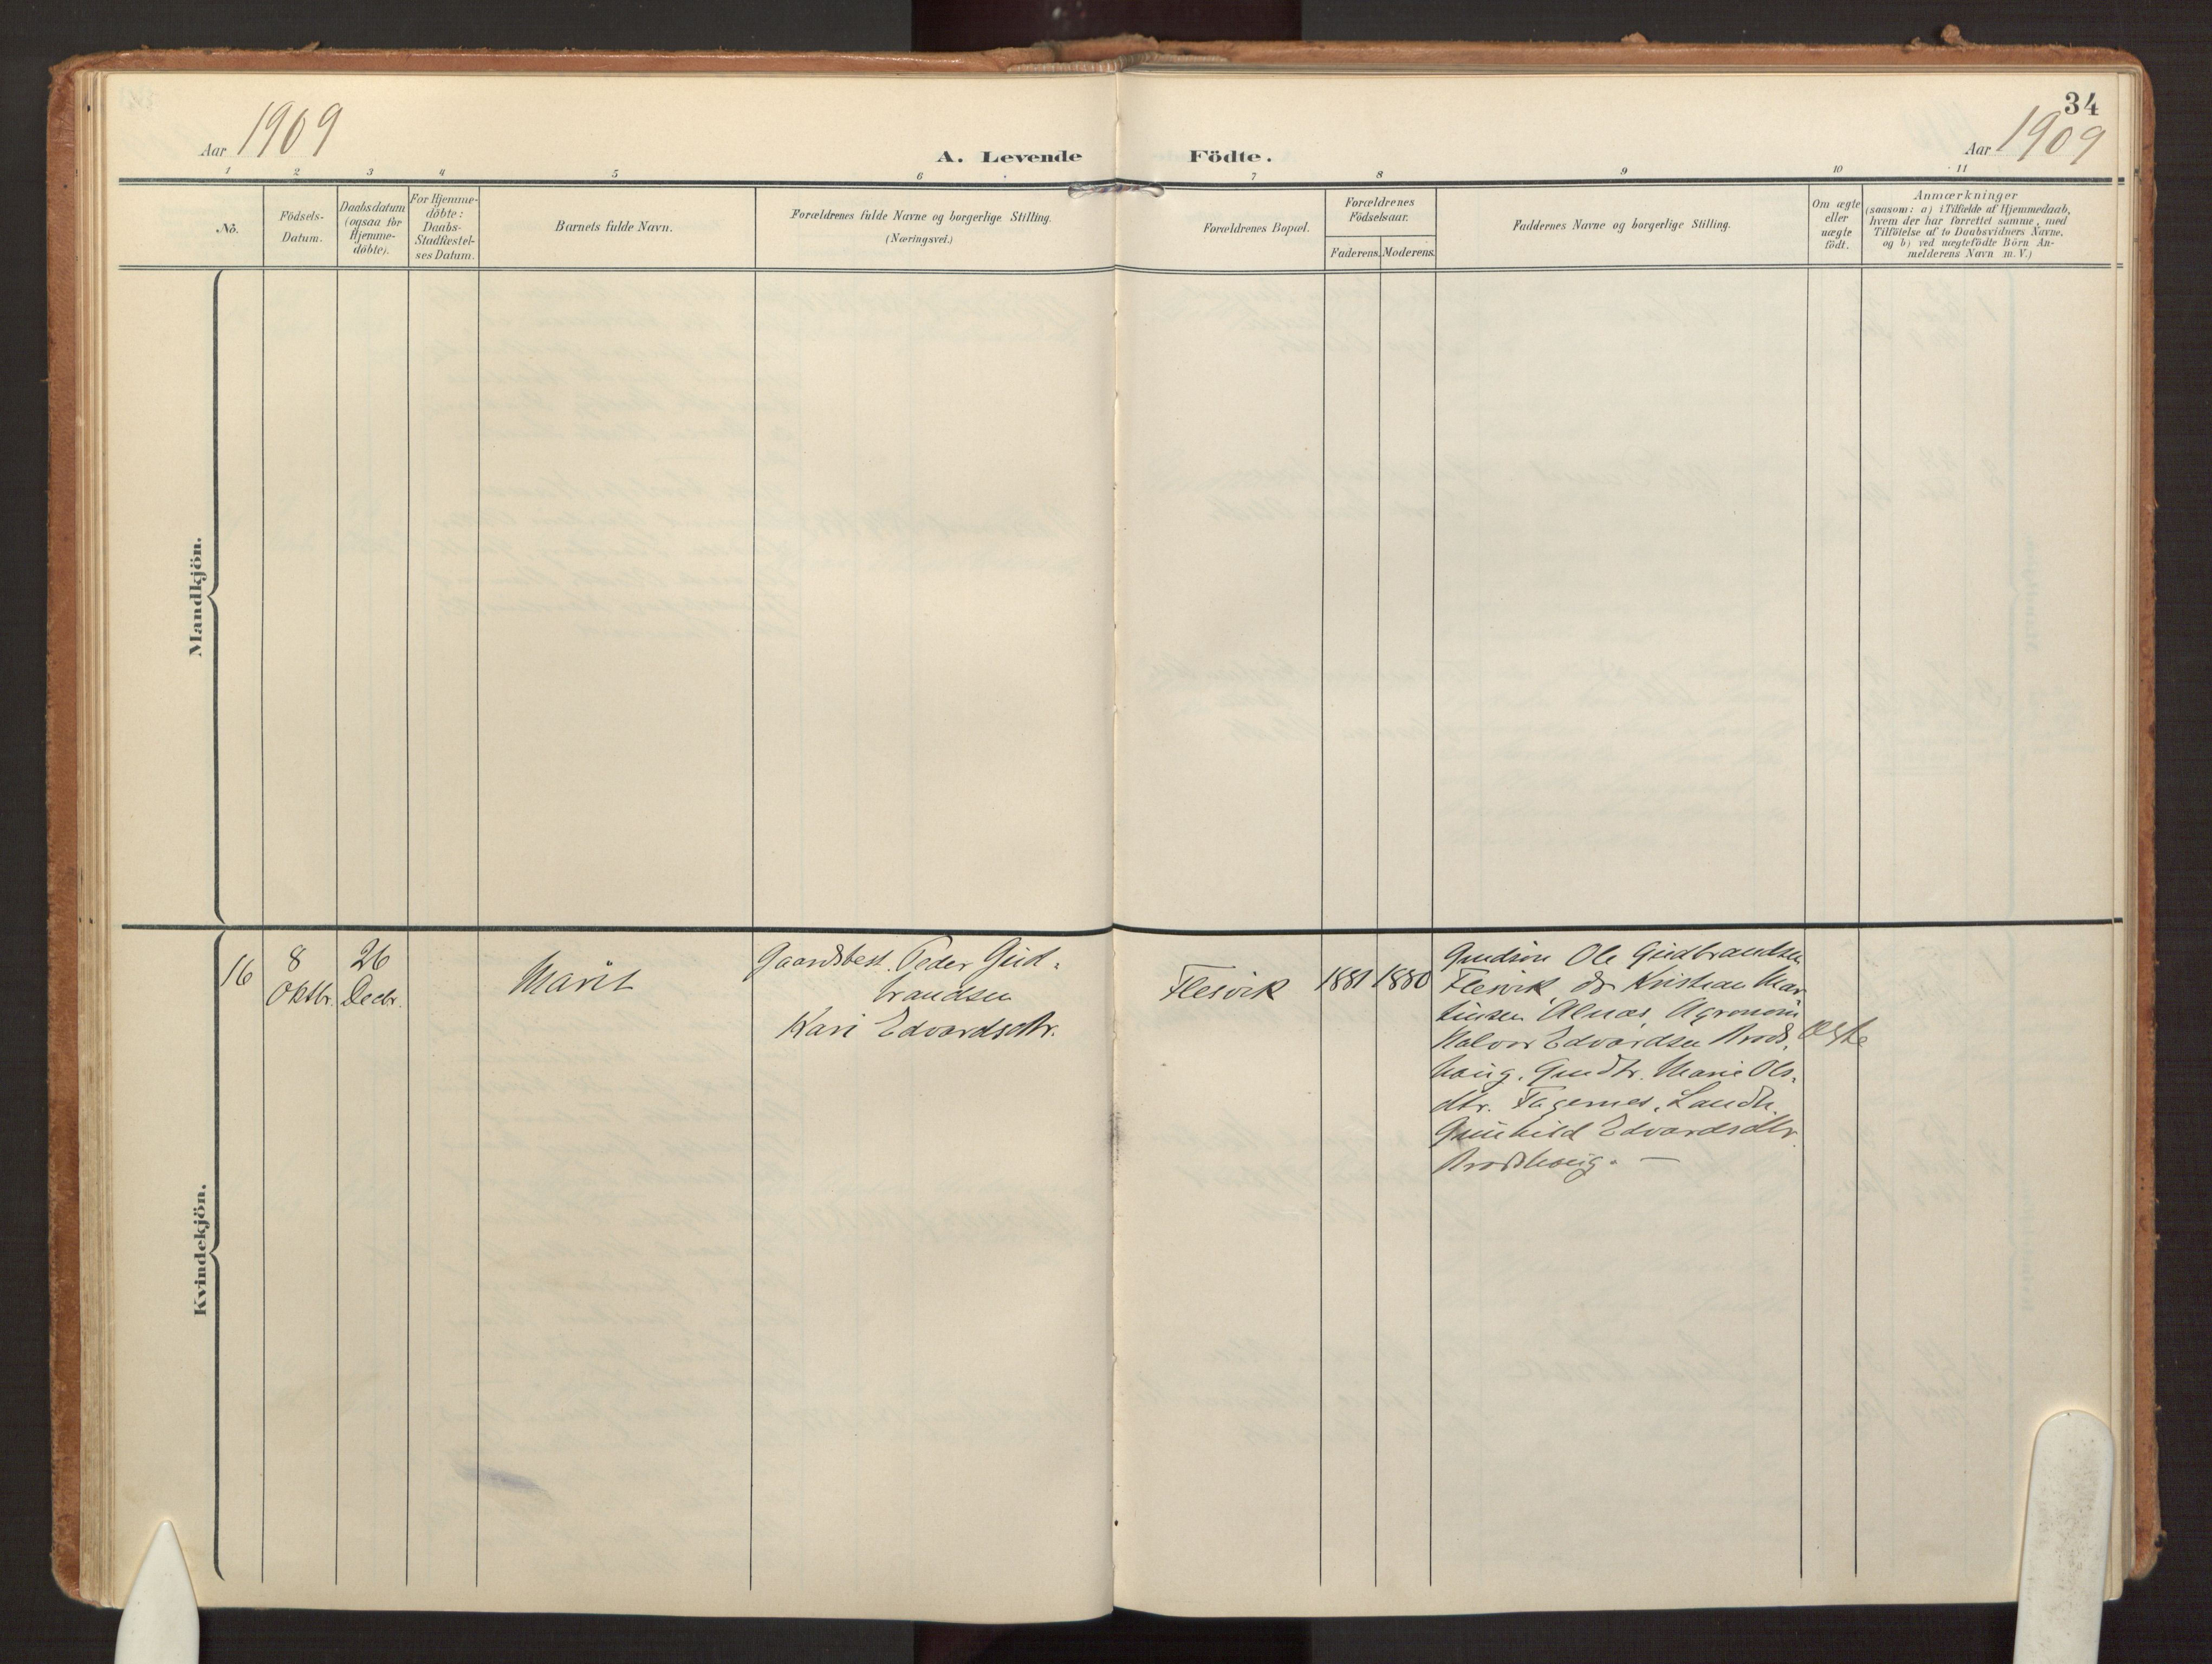 34
Aar 1909
A. Levende Födte.
Aar 1909
1 2 3 4 5 6 7 8 9 10 11
No.
Födsels-
Datum.
Daabsdatum
(ogsaa for
Hjemme-
döbte).
For Hjemme-
döbte:
Daabs-
Stadfæstel-
ses Datum.
Barnets fulde Navn.
Forældrenes fulde Navne og borgerlige Stilling.
(Næringsvei.)
Forældrenes Bopæl.
Forældrenes
Födselsaar.
Faderens. Moderens.
Faddernes Navne og borgerlige Stilling.
Om ægte
eller
uægte
födt.
Anmærkninger
(saasom: a) i Tilfælde af Hjemmedaab,
hvem der har forrettet samme, med
Tilföielse af to Daabsvidners Navne,
og b) ved uægtefödte Börn An-
melderens Navn m. V.)
Mandkjön.
Kvindekjön.
16
8
Oktbr.
26
Decbr.
Marit
Gaardsbest. Peder Gud-
brandsen
Kari Edvardsdtr.
Flesvik
1881 1880
Gaardm Ole Gudbrandsen
Flesvik, do Kristian Mar
tinsen Alnæs, Agronom
Halvor Edvardsen Brods-
houg, Marie Ols-
dtr. Fagernes,
Gunhild Edvardsdtr.
Brodshoug. —
Ægte